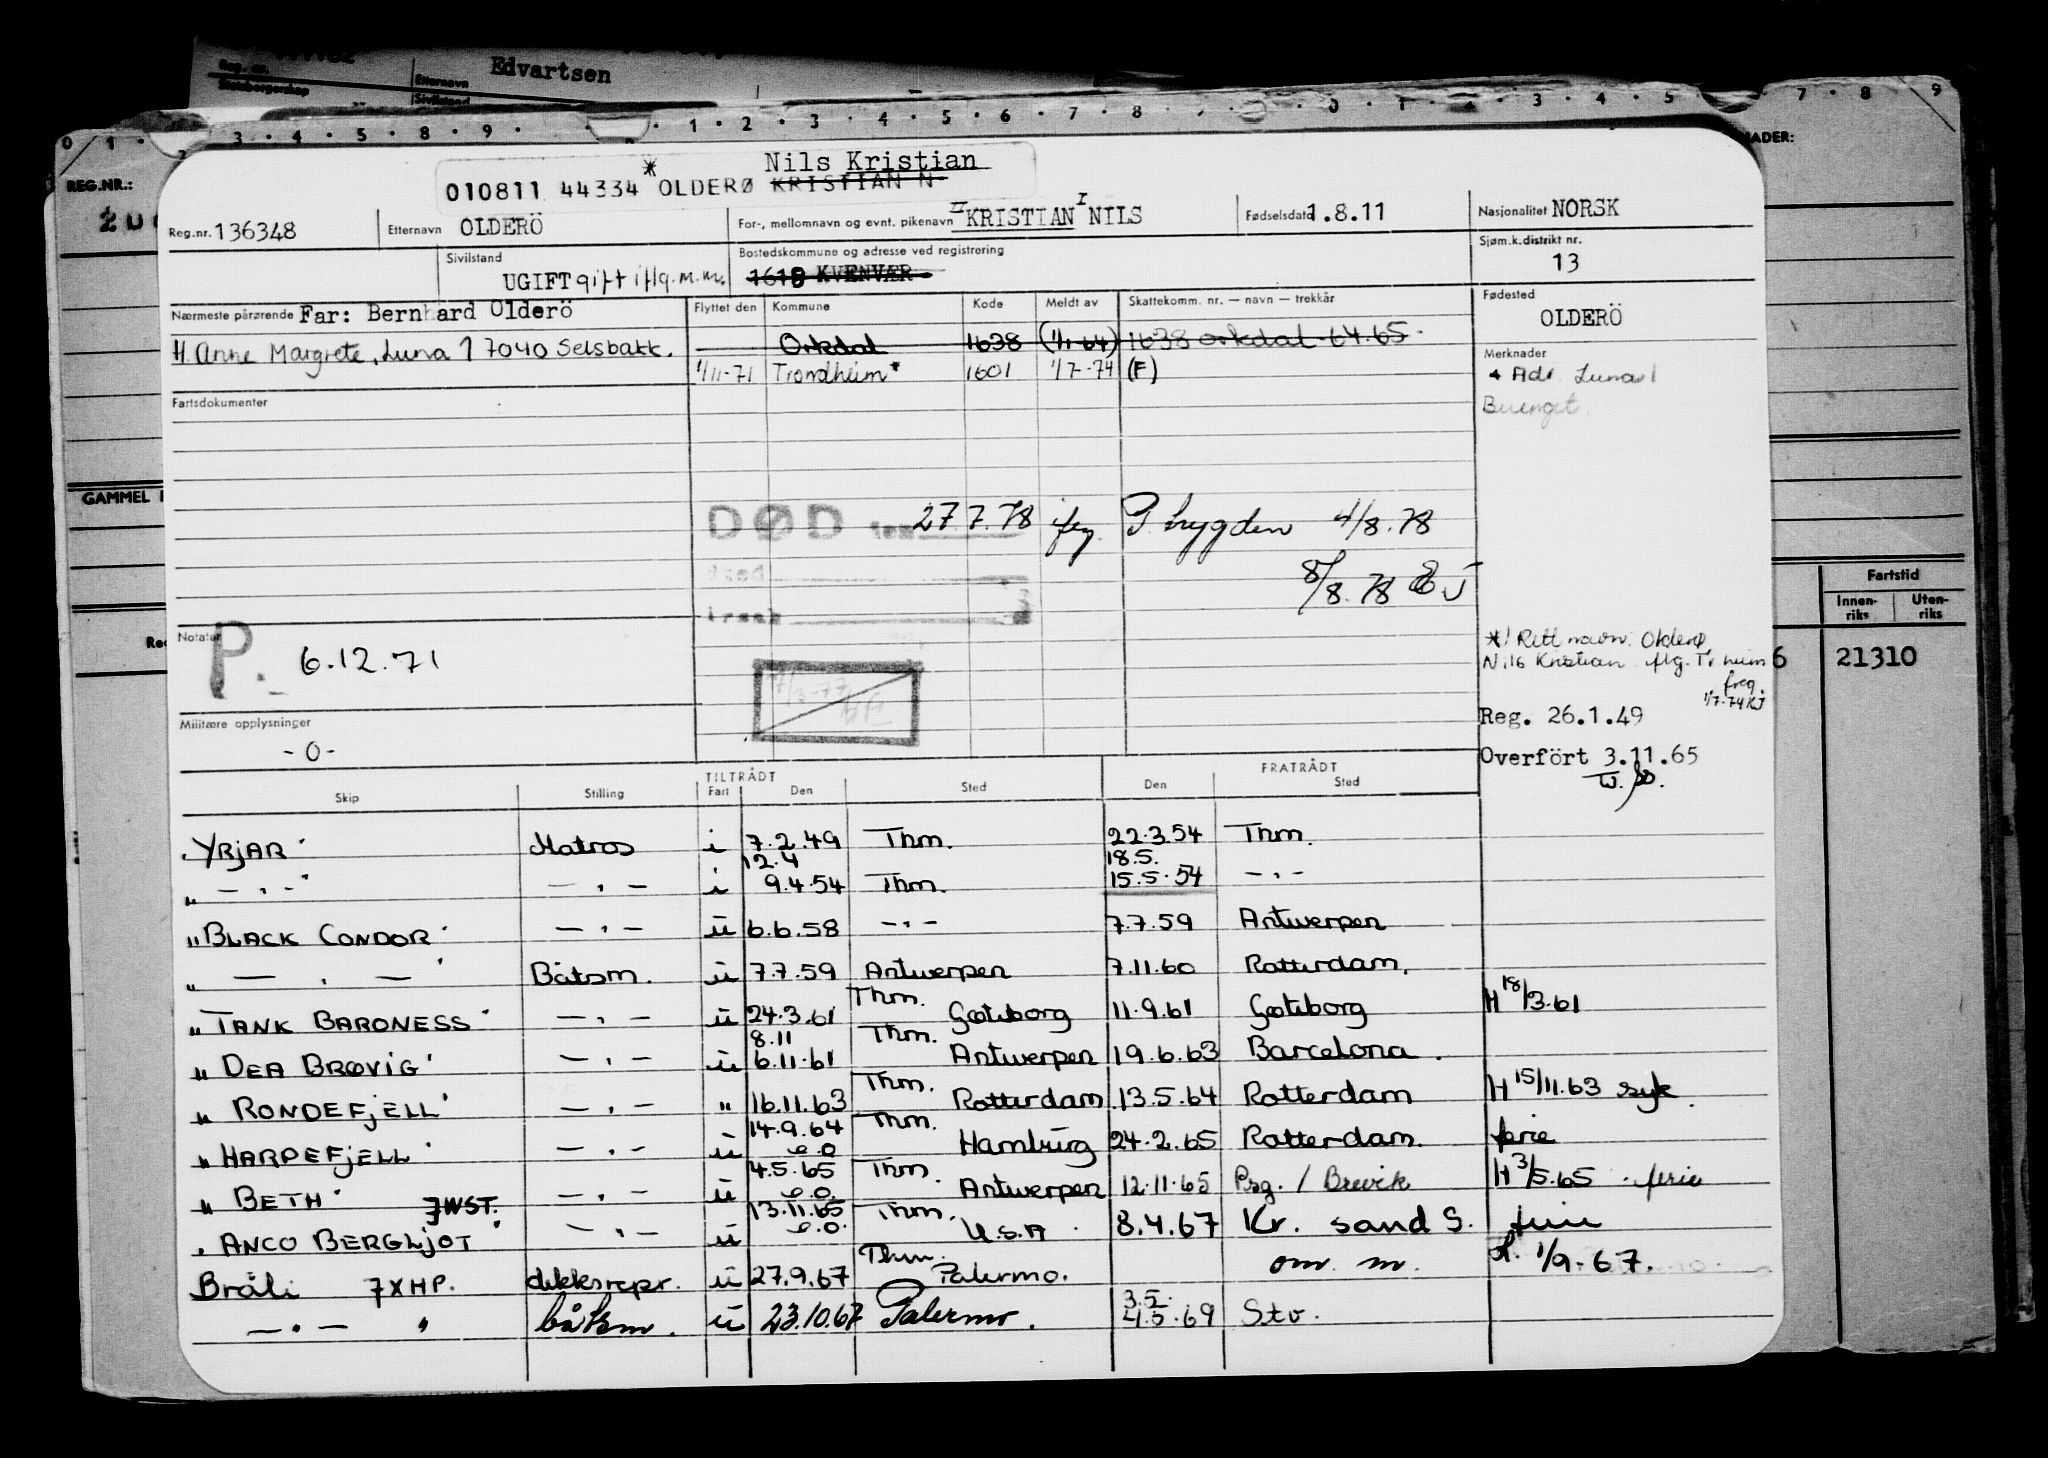 Edvartsen
Reg. nr. Etternavn
Statsborgerskap Sivilstand
0 1 2 3 4 5 8 9 1 2 3 4 5 6 7 8 0 1 2 3 4 5 7 8 9
REG.NR.:
GAMMEL
Fartstid
Innen-riks Uten-riks
6 21310
Nils Kristian
010811 44334 * OLDERØ KRISTIAN N
Reg.nr. 136348 Etternavn OLDERÖ For-, mellomnavn og evnt. pikenavn II KRISTIAN I NILS Fødselsdato 1.8.11 Nasjonalitet NORSK
Sivilstand UGIFT gift iflg. m.m. Bostedskommune og adresse ved registrering 1618 KVENVÆR Sjøm.k.distrikt nr. 13
Nærmeste pårørende Far: Bernhard Olderö Flyttet den Kommune Kode Meldt av Skattekomm. nr. — navn — trekkår Fødested OLDERÖ
H. Anne Margrete, Luna 1 7040 Selsbakk. — Orkdal 1638 (1/1-64) 1638 Orkdal 64.65.
1/11-71 Trondheim* 1601 1/7-74 (F)
Merknader
* Adr. Luna 1
Fartsdokumenter
DØD 27 7.78 iflg. P. trygden 4/8.78
sted
8/8.78
Notater P. 6.12.71
*! Rett navn: Olderø
Nils Kristian flg. Tr.heim
freg.
1/7-74 KJ
Reg. 26.1.49
Militære opplysninger
-0-
Overfört 3.11.65
TILTRÅDT FRATRÅDT
Skip Stilling Fart Den Sted Den Sted
YRJAR Matros i 7.2.49 Thm. 22.3.54 Thm.
12.4 18.5.
" — " — — " — i 9.4.54 Thm. 15.5.54 — " —
" BLACK CONDOR — " — ü 6.6.58 — " — 7.7.59 Antwerpen
" — " — Båtsm. ü 7.7.59 Antwerpen 7.11.60 Rotterdam.
" TANK BARONESS — " — ü 24.3.61 Thm. Gøteborg 11.9.61 Gøteborg H 18/3.61
8.11
" DEA BRØVIG — " — ü 6.11.61 Thm. Antwerpen 19.6.63 Barcelona.
" RONDEFJELL — " — " 16.11.63 Thm. Rotterdam 13.5.64 Rotterdam H 15/11.63 syk.
" HARPEFJELL — " — ü 14.9.64 e.o Thm. Hamburg 24.2.65 Rotterdam. ferie
" BETH — " — ü 4.5.65 e.o. Thm. Antwerpen 12.11.65 Psg. / Brevik H 3/5.65 . ferie
" ANCO BERGLJOT JWST. — " — ü 13.11.65 e.o. Thm. U.S.A 8.4.67 Kr. sand S. ferie
Bråli 7XHP. dekksrepr. ü 27.9.67 Thm. Palermo. om. m. H. 1/9-67.
— " — " båtsm. ü 23.10.67 Palermo. 3.5. 4.5.69 Stv.